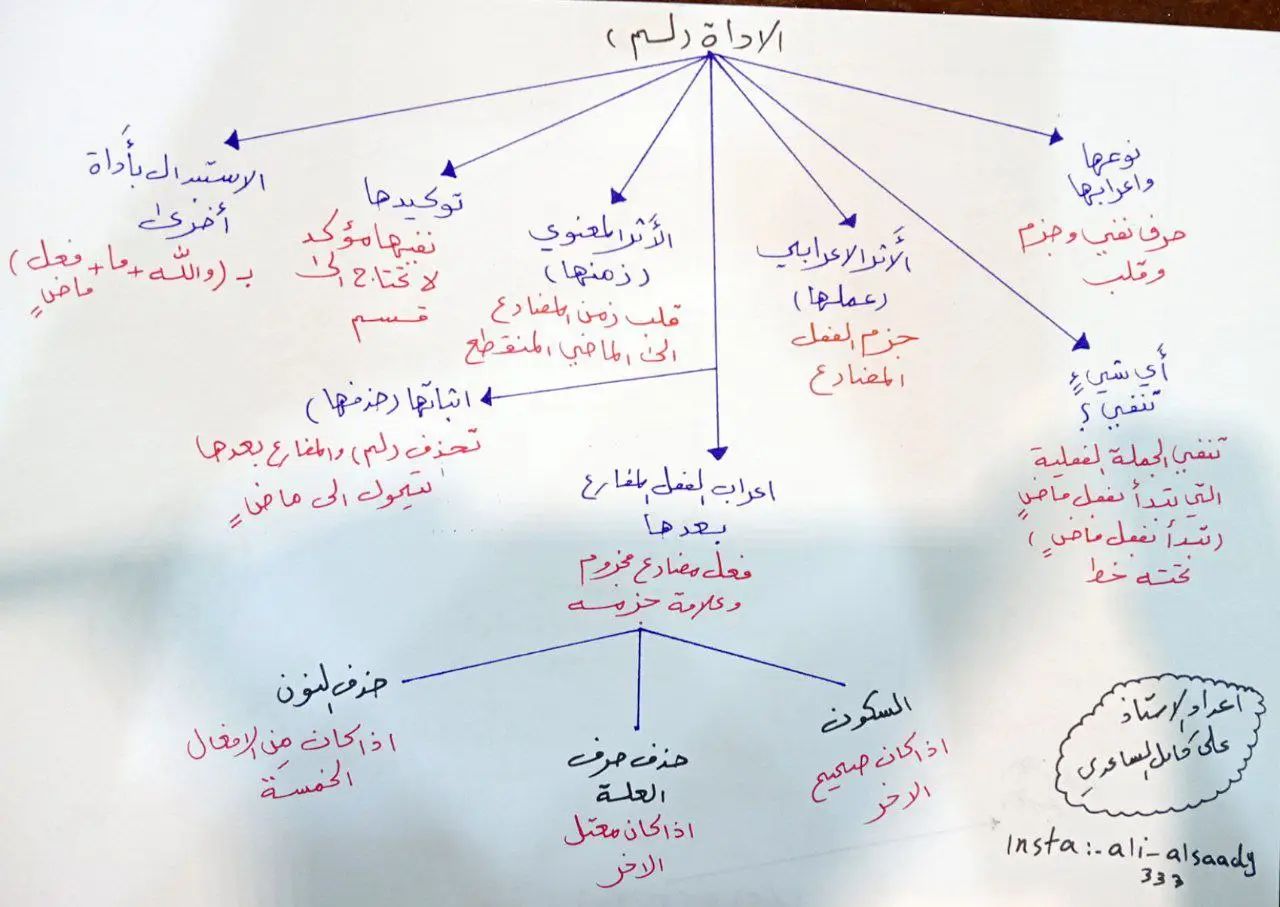 الاداة (لم)
نوعها
واعرابها
حرف نفي وجزم
وقلب
أي شيءٍ
تنفي ؟
تنفي الجملة الفعلية
التي تبدأ بفعل ماضٍ
(تبدأ بفعل ماضٍ)
تحته خط
الأثر الاعرابي
(عملها)
جزم الفعل
المضارع
الأثر المعنوي
(زمنها)
قلب زمن المضارع
الى الماضي المنقطع
توكيدها
نفيها مؤكد
لا تحتاج الى
قسم
الاستبدال بأداة
أخرى
بـ (والله + ما + فعل)
ماضٍ
اثباتها (حذفها)
تحذف (لم) والمضارع بعدها
يتحول الى ماضٍ
اعراب الفعل المضارع
بعدها
فعل مضارع مجزوم
وعلامة جزمه
السكون
اذا كان صحيح
الاخر
حذف حرف
العلة
اذا كان معتل
الاخر
حذف النون
اذا كان من الافعال
الخمسة
اعداد الاستاذ
علي كامل الساعدي
Insta :- ali-alsaady
333